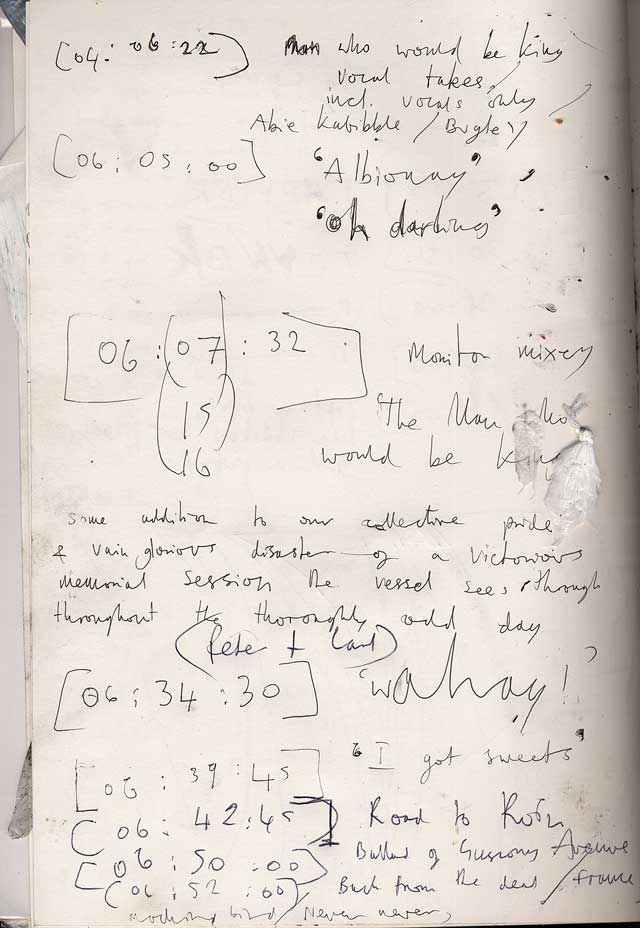 [04: 06:22] Man who would be king
vocal takes,
incl. vocals only
Abie Kabibble / Bugle
[06: 05:00] 'Albionay'
'oh darling'
[06:(07):32] Monitor mixes
15
16
'The Man who
would be king
some addition to our collective pride
& vain glorious disaster of a victorious
memorial session the vessel sees through
throughout the thoroughly odd day
(Peter + Carl)
[06:34:30] 'wahay!'
[06:39:45] "I got sweets"
[06:42:45] Road to Ruin
[06:50:00] Ballad of Grimaldi
[06:52:00] Back from the dead / France
Mocking bird / Never never,